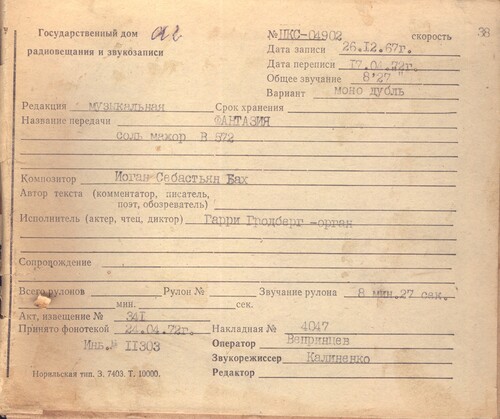 Государственный дом
радиовещания и звукозаписи
№ ЦКС-04902 скорость 38
Дата записи 26.12.67г.
Дата переписи 17.04.72г.
Общее звучание 8'27"
Вариант моно дубль
Редакция музыкальная Срок хранения
Название передачи ФАНТАЗИЯ
соль мажор В 572
Композитор Иоган Себастьян Бах
Автор текста (комментатор, писатель,
поэт, обозреватель)
Исполнитель (актер, чтец, диктор) Гарри Гродберг -орган
Сопрождение
Всего рулонов Рулон № Звучание рулона 8 мин.27 сек.
мин. сек.
Акт, извещение № 341
Принято фонотекой 24.04.72г. Накладная № 4047
Инв.№ 11303 Оператор Вепринцев
Звукорежиссер Калиненко
Норильская тип. З. 7403. Т. 10000. Редактор